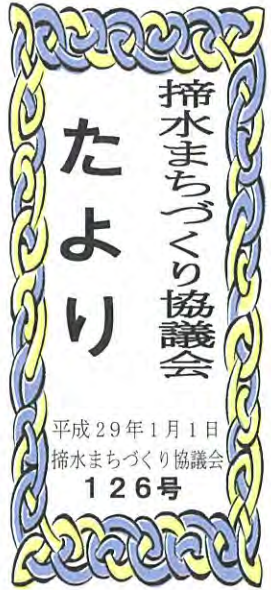 揥水まちづくり協議会
たより
平成29年1月1日
揥水まちづくり協議会
126号